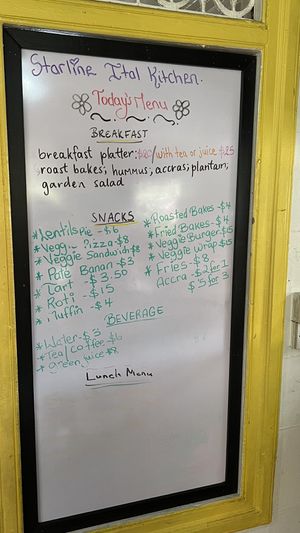 Starline Ital Kitchen.
Today's Menu
BREAKFAST
breakfast platter: /with tea or juice $25
roast bakes; hummus, accras; plantain,
garden salad
SNACKS
*Lentils Pie -$6
*Veggie Pizza-$8
*Veggie Sandwich-$8
*Pate Banan-$3
*Tart -$3.50
*Roti -$15
*Muffin -$4
*Roasted Bakes -$4
*Fried Bakes -$4
*Veggie Burger-$15
*Veggie Wrap-$15
*Fries -$8
Accra -$2 for 1
$5 for 3
BEVERAGE
*Water-$3
*Tea/Coffee-$6
*green juice $8
Lunch Menu